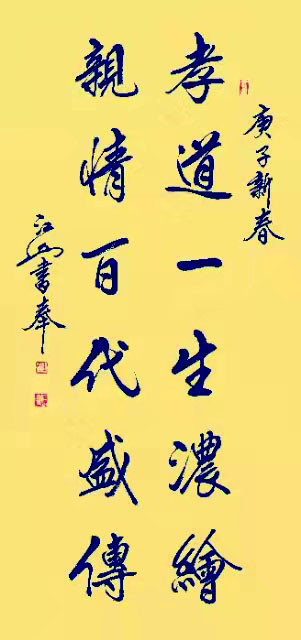 庚子新春
孝道一生濃繪
親情百代盛傳
江書奉